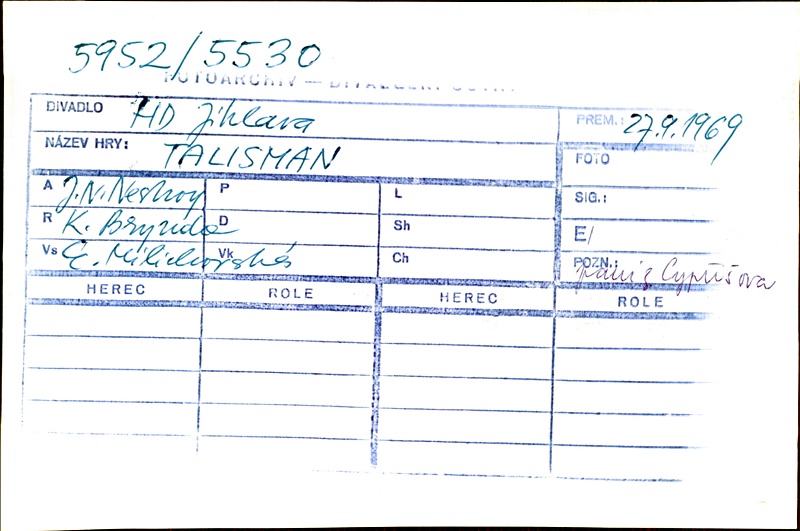 5952/5530
FOTOARCHIV — DIVADELNÍ ÚSTAV
DIVADLO HD Jihlava PREM.: 27.9.1969
NÁZEV HRY: TALISMAN FOTO
A J.N. Nestroy P L SIG.:
R K. Brynda D Sh E/
Vs Vk Ch POZN.: Cyprišova
HEREC ROLE HEREC ROLE